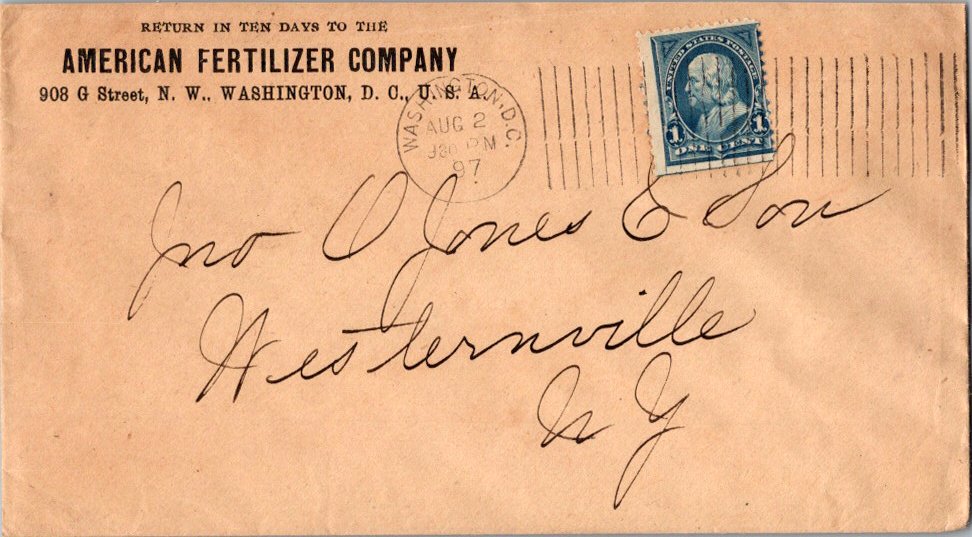 RETURN IN TEN DAYS TO THE
AMERICAN FERTILIZER COMPANY
908 G Street, N. W., WASHINGTON, D. C., U. S. A.
WASHINGTON, D.C.
AUG 2
930 PM
97
UNITED STATES POSTAGE
1 1
ONE CENT
Jno O Jones & Son
Westernville
N Y